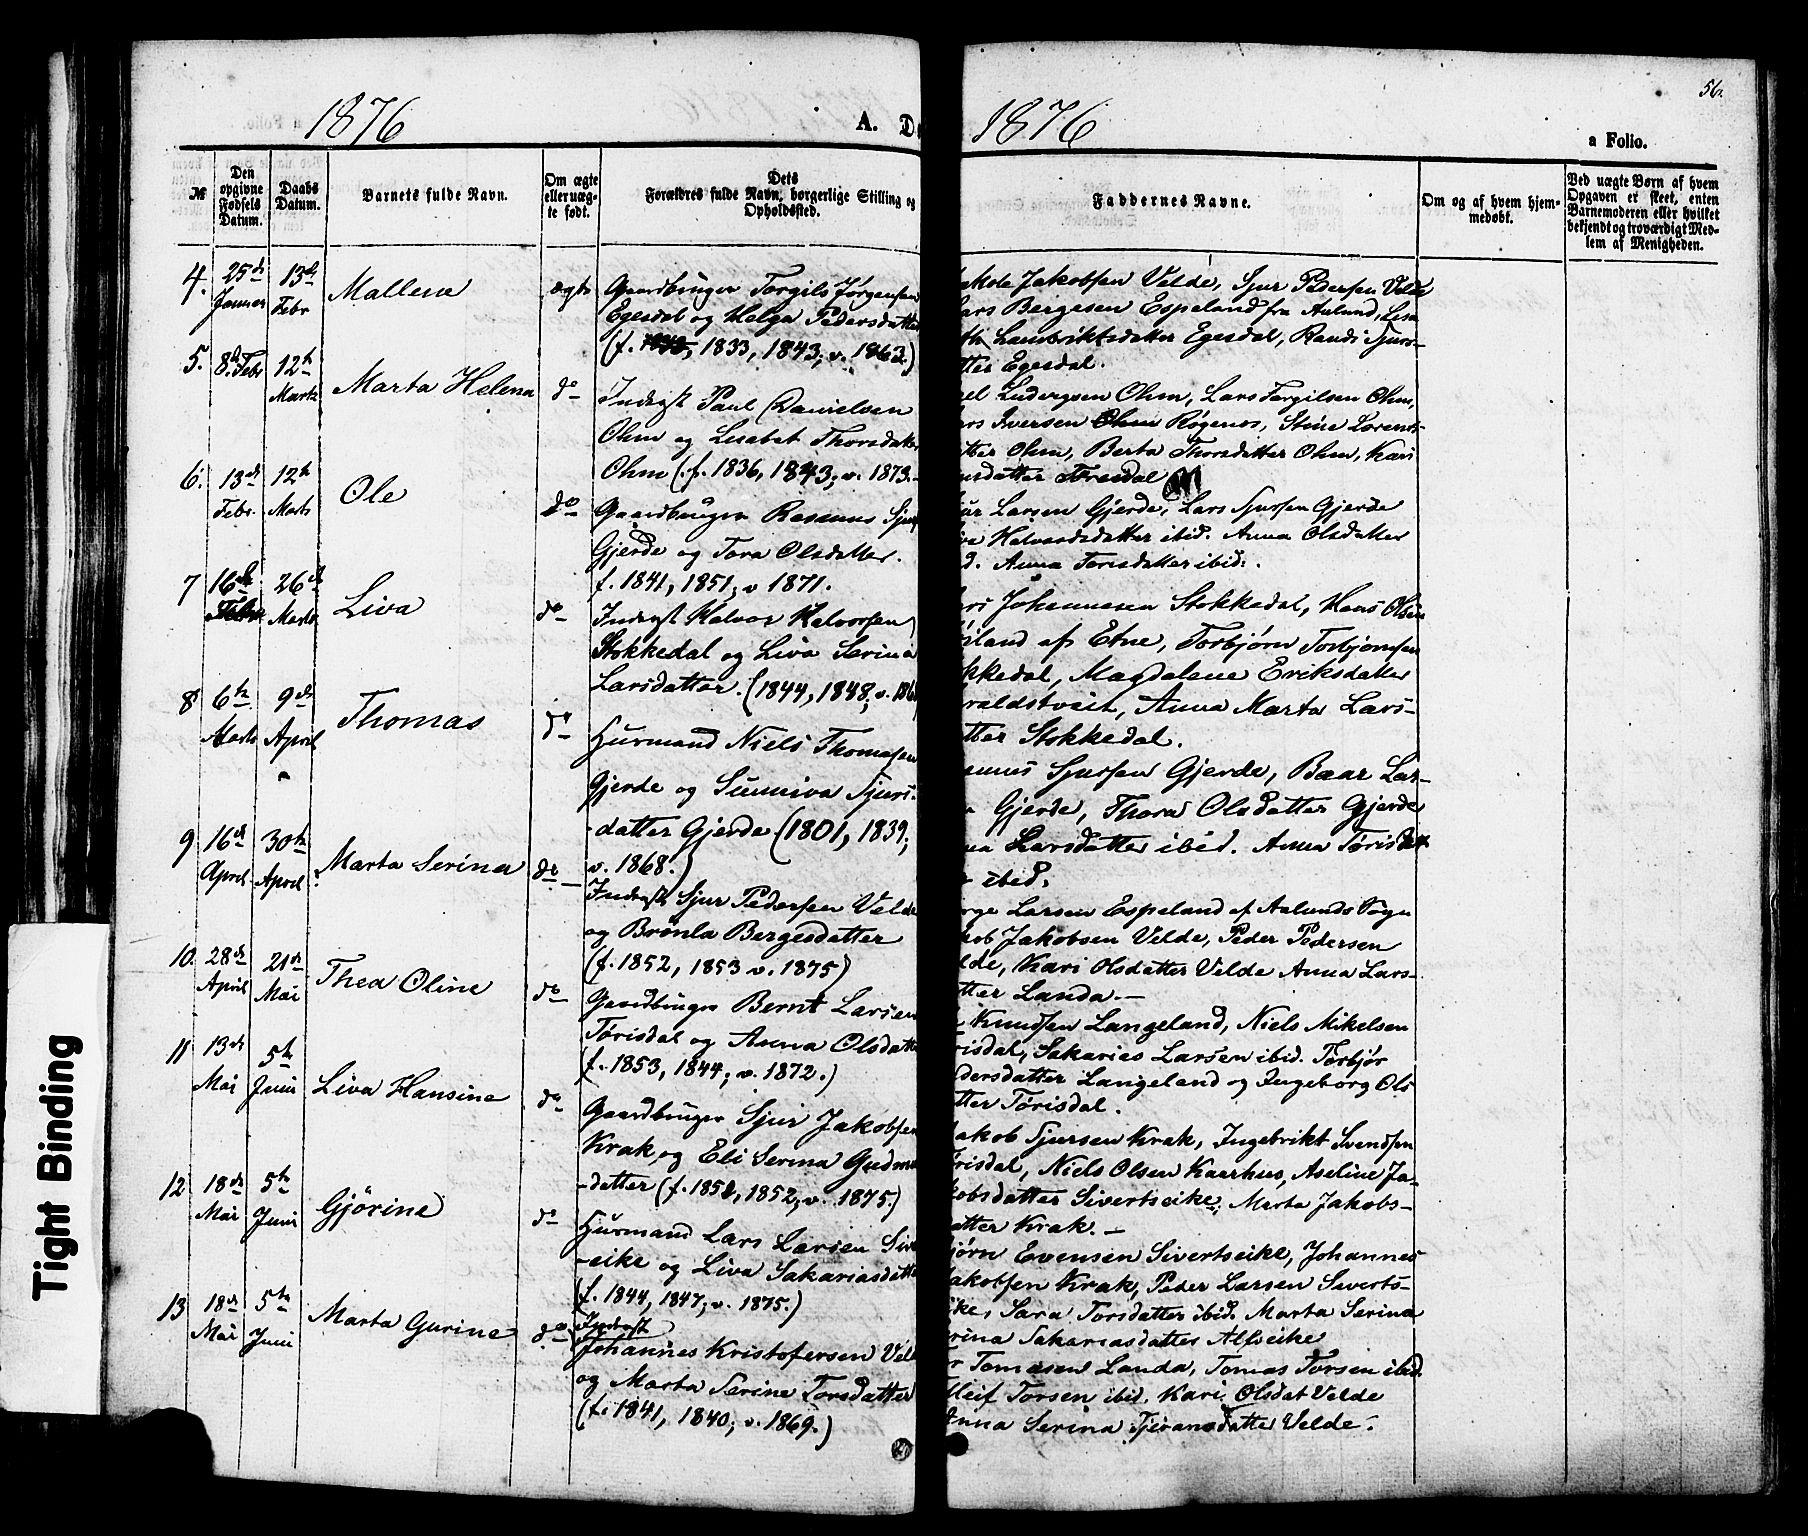 56.
1876
A. D
1876
a Folio.
№
Den opgivne Fødsels Datum.
Daabs Datum.
Barnets fulde Navn.
Om ægte eller uægte født.
Dets Forældres fulde Navn, borgerlige Stilling og Opholdssted.
Faddernes Navne.
Om og af hvem hjemmedøbt.
Ved uægte Børn af hvem Opgaven er skeet, enten Barnemoderen eller hvilket bekjendt og troværdigt Medlem af Menigheden.
4. 25de Januar 13de Febr Mallene ægte
Gaardbruger Torgils Jørgensen
Egesdal og Helga Pedersdatter
(f. 1833, 1843, v. 1863.)
Jakobsen Velde, Sjur Pedersen Velde
ars Bergesen Espeland fra Aalund, Lisa
Lambriktsdatter Egesdal, Randi Sjurs-
tter Egesdal.
5. 8de Febr 12te Marts Marta Helena do
Inderst Paul Danielsen
Ohm og Lisabet Thorsdatter
Ohm (f. 1836, 1843, v. 1873.
el Ludvigsen Ohm, Lars Torgilsen Ohm,
ars Iversen Røgenes, Stine Lorents-
tter Ohm, Berta Thorsdatter Ohm, Kari
nsdatter Tresdal
6. 13de Febr. 12te Marts Ole do
Gaardbruger Rasmus Sjurs
Gjerde og Tora Olsdatter.
f. 1841, 1851, v 1871.
jur Larsen Gjerde, Lars Sjursen Gjerde
iva Halvordsdatter ibid. Anna Olsdatter
d. Anna Torisdatter ibid.
7 16de Febr 26de Marts Liva do
Inderst Halvor Halvorsen
Stokkedal og Liva Serina
Larsdatter. (1844, 1848, v. 186
ars Johannesen Stokkedal, Hans Olsen
iland af Etne, Torbjørn Torbjørnsen
kkedal, Magdalene Eriksdatter
raldstveit, Anna Marta Lars-
tter Stokkedal.
8 6te Marts 9de April Thomas do
Huusmand Niels Thomasen
Gjerde og Sunniva Sjurs-
datter Gjerde (1801, 1839,
v. 1868.)
smus Sjursen Gjerde, Baar Lar-
n Gjerde, Thora Olsdatter Gjerde
na Larsdatter ibid. Anna Tørisdatt
r ibid.
9 16de April 30te April Marta Serina do
Inderst Sjur Pedersen Velde
og Brønla Bergesdatter
(f. 1852, 1853 v. 1875)
erge Larsen Espeland af Aalunds Sogn
kob Jakobsen Velde, Peder Pedersen
elde, Kari Olsdatter Velde Anna Lars-
tter Landa.
10. 28de April 21de Mai Thea Oline do
Gaardbruger Bernt Larsen
Tørisdal og Anna Olsdatt
(f. 1853, 1844, v. 1872.)
Knudsen Langeland, Niels Mikelsen
risdal, Sakarias Larsen ibid. Torbjør
edersdatter Langeland og Ingeborg Ols
tter Tørisdal.
11 13de Mai 5te Juni Liva Hansine do
Gaardbruger Sjur Jakobsen
Krak og Eli Serina Gudm
datter (f. 1851, 1852, v. 1875.)
Jakob Sjursen Krak, Ingebrikt Svendsen
ørisdal, Niels Olsen Kaarhus, Aseline Ja-
kobsdatter Sivertseike, Marta Jakobs-
atter Krak.
12 18de Mai 5te Juni Gjørine do
Huusmand Lars Larsen Siv
eike og Liva Sakariasdatte
(f. 1844, 1847, v. 1875.)
bjørn Evensen Sivertseike, Johannes
Jakobsen Krak, Peder Larsen Siverts-
ike, Sara Torsdatter ibid. Marta Serina
rina Sakariasdatter Alfseike
13 18de Mai 5te Juni Marta Gurine do
Inderst
Johannes Kristofersen Vel
og Marta Serine Torsdatter
(f. 1841, 1840, v. 1869.)
r Tomasen Landa, Tomas Torsen ibid.
lleif Torsen ibid. Kari Olsdat Velde
Anna Serina Tjeransdatter Velde.
Tight Binding